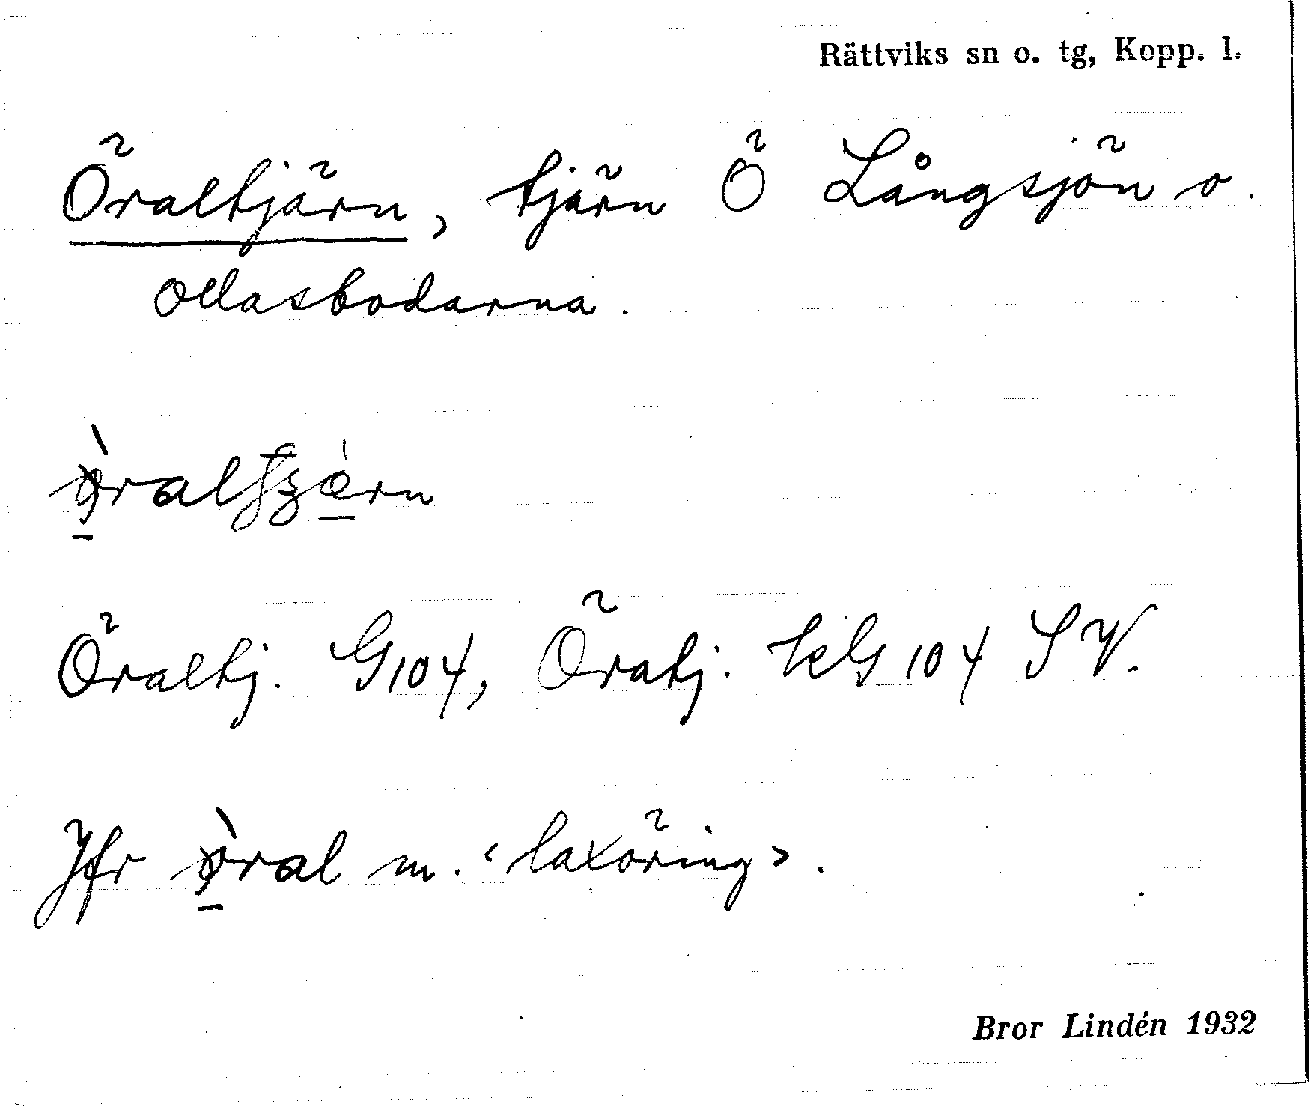 Rättviks sn o. tg, Kopp. l.
Öraltjärn, tjärn Ö Långsjön o.
Ollasbodarna.
Öraltj. G104, Öratj. kG 104 SV.
Jfr m. ‹laxöring›.
Bror Lindén 1932